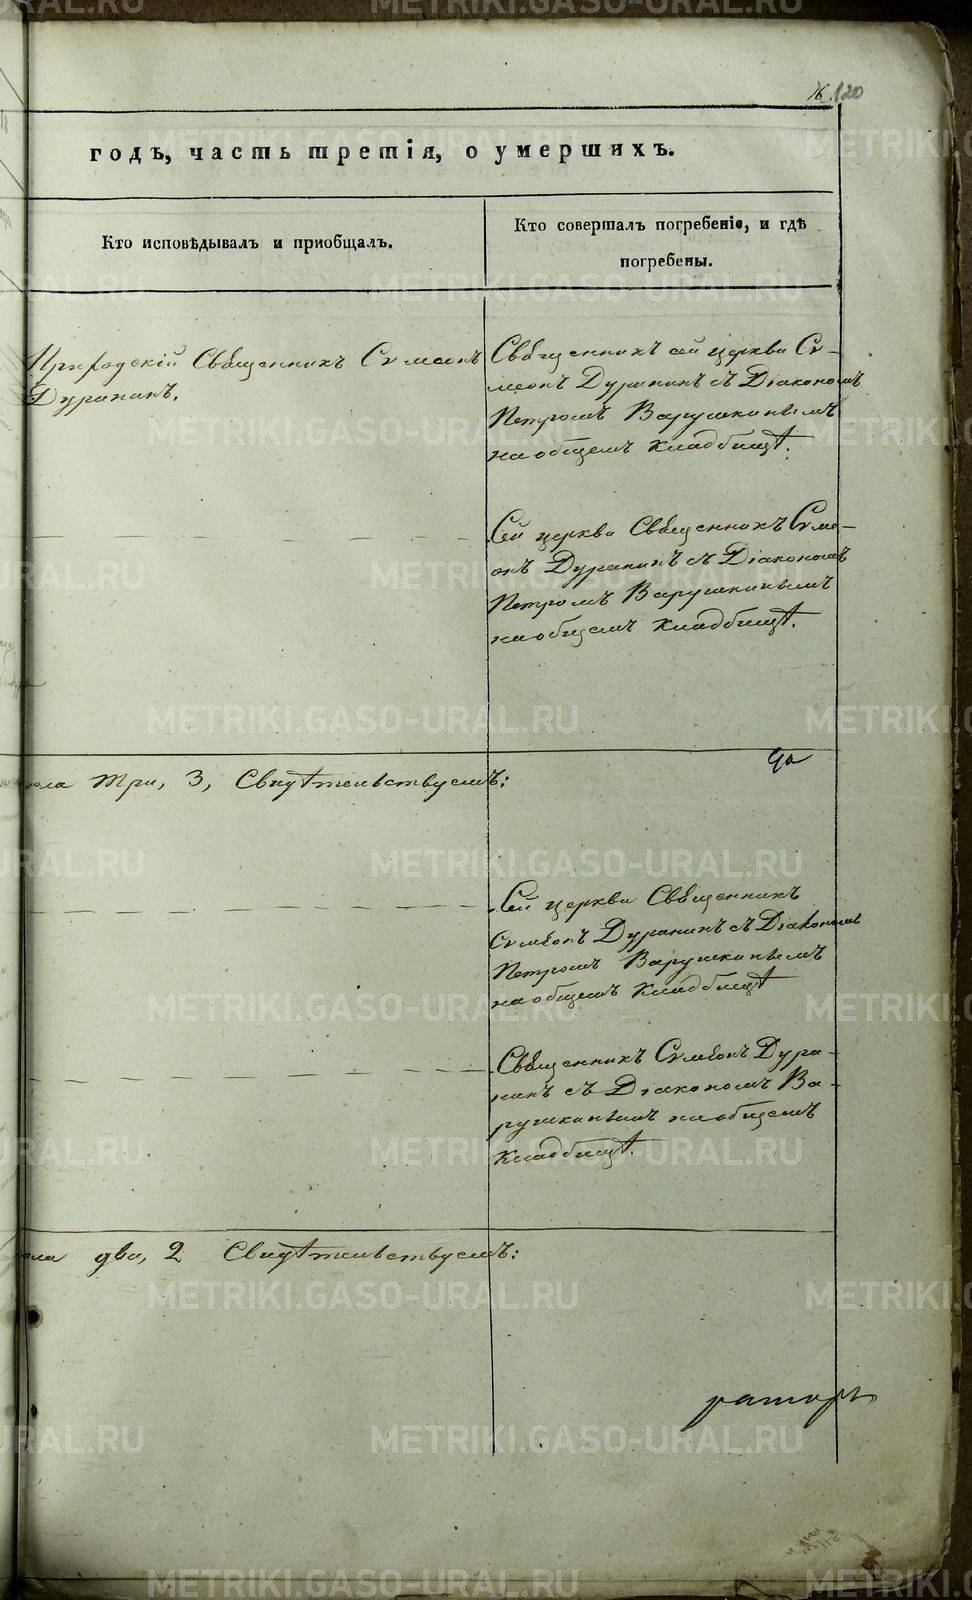 120
годъ, часть третія, о умершихъ.
Кто исповѣдывалъ и приобщалъ.
Кто совершалъ погребеніе, и гдѣ
погребены.
Священникъ Сѵмеонъ
Дурапинъ.
Священникъ сей церкви Сѵ-
меонъ Дурапинъ съ Діакономъ
Петромъ Варушкинымъ
на общемъ кладбищѣ.
Сей церкви Священникъ Сѵме-
онъ Дурапинъ съ Діакономъ
Петромъ Варушкинымъ
на общемъ кладбищѣ.
три, 3, Свидѣтельствуемъ:
Сей церкви Священникъ
Сѵмеонъ Дурапинъ съ Діакономъ
Петромъ Варушкинымъ
на общемъ кладбищѣ
Священникъ Сѵмеонъ Дура-
пинъ съ Діакономъ Ва-
рушкинымъ на общемъ
кладбищѣ.
два, 2 Свидѣтельствуемъ:
METRIKI.GASO-URAL.RU